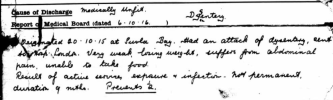 Cause of Discharge Medically Unfit.
Report of Medical Board (dated 6.10.16.) Dysentery
20.10.15 at Suvla Bay. Had an attack of dysentery, sent
to Hosp. Very weak, losing weight, suffers from abdominal
pain, unable to take food
Result of active service, exposure & infection. Not permanent,
duration 4 mths. Prevents ½.